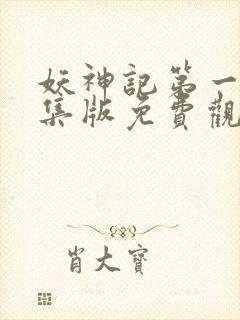 妖神記第一
集版免費觀
肖大寶